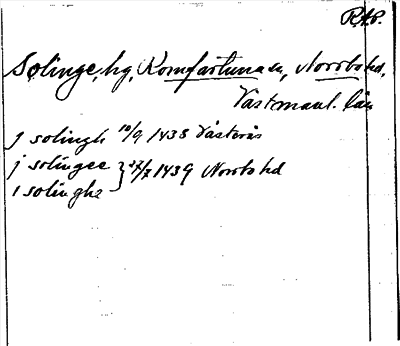 R.A.P.
Solinge, hg, Romfartunaen, Norrbo hd,
Västmanl. län
j solingh 10/9 1438 Västerås
j solingee } 27/7 1439 Norrbo hd
i solinghe